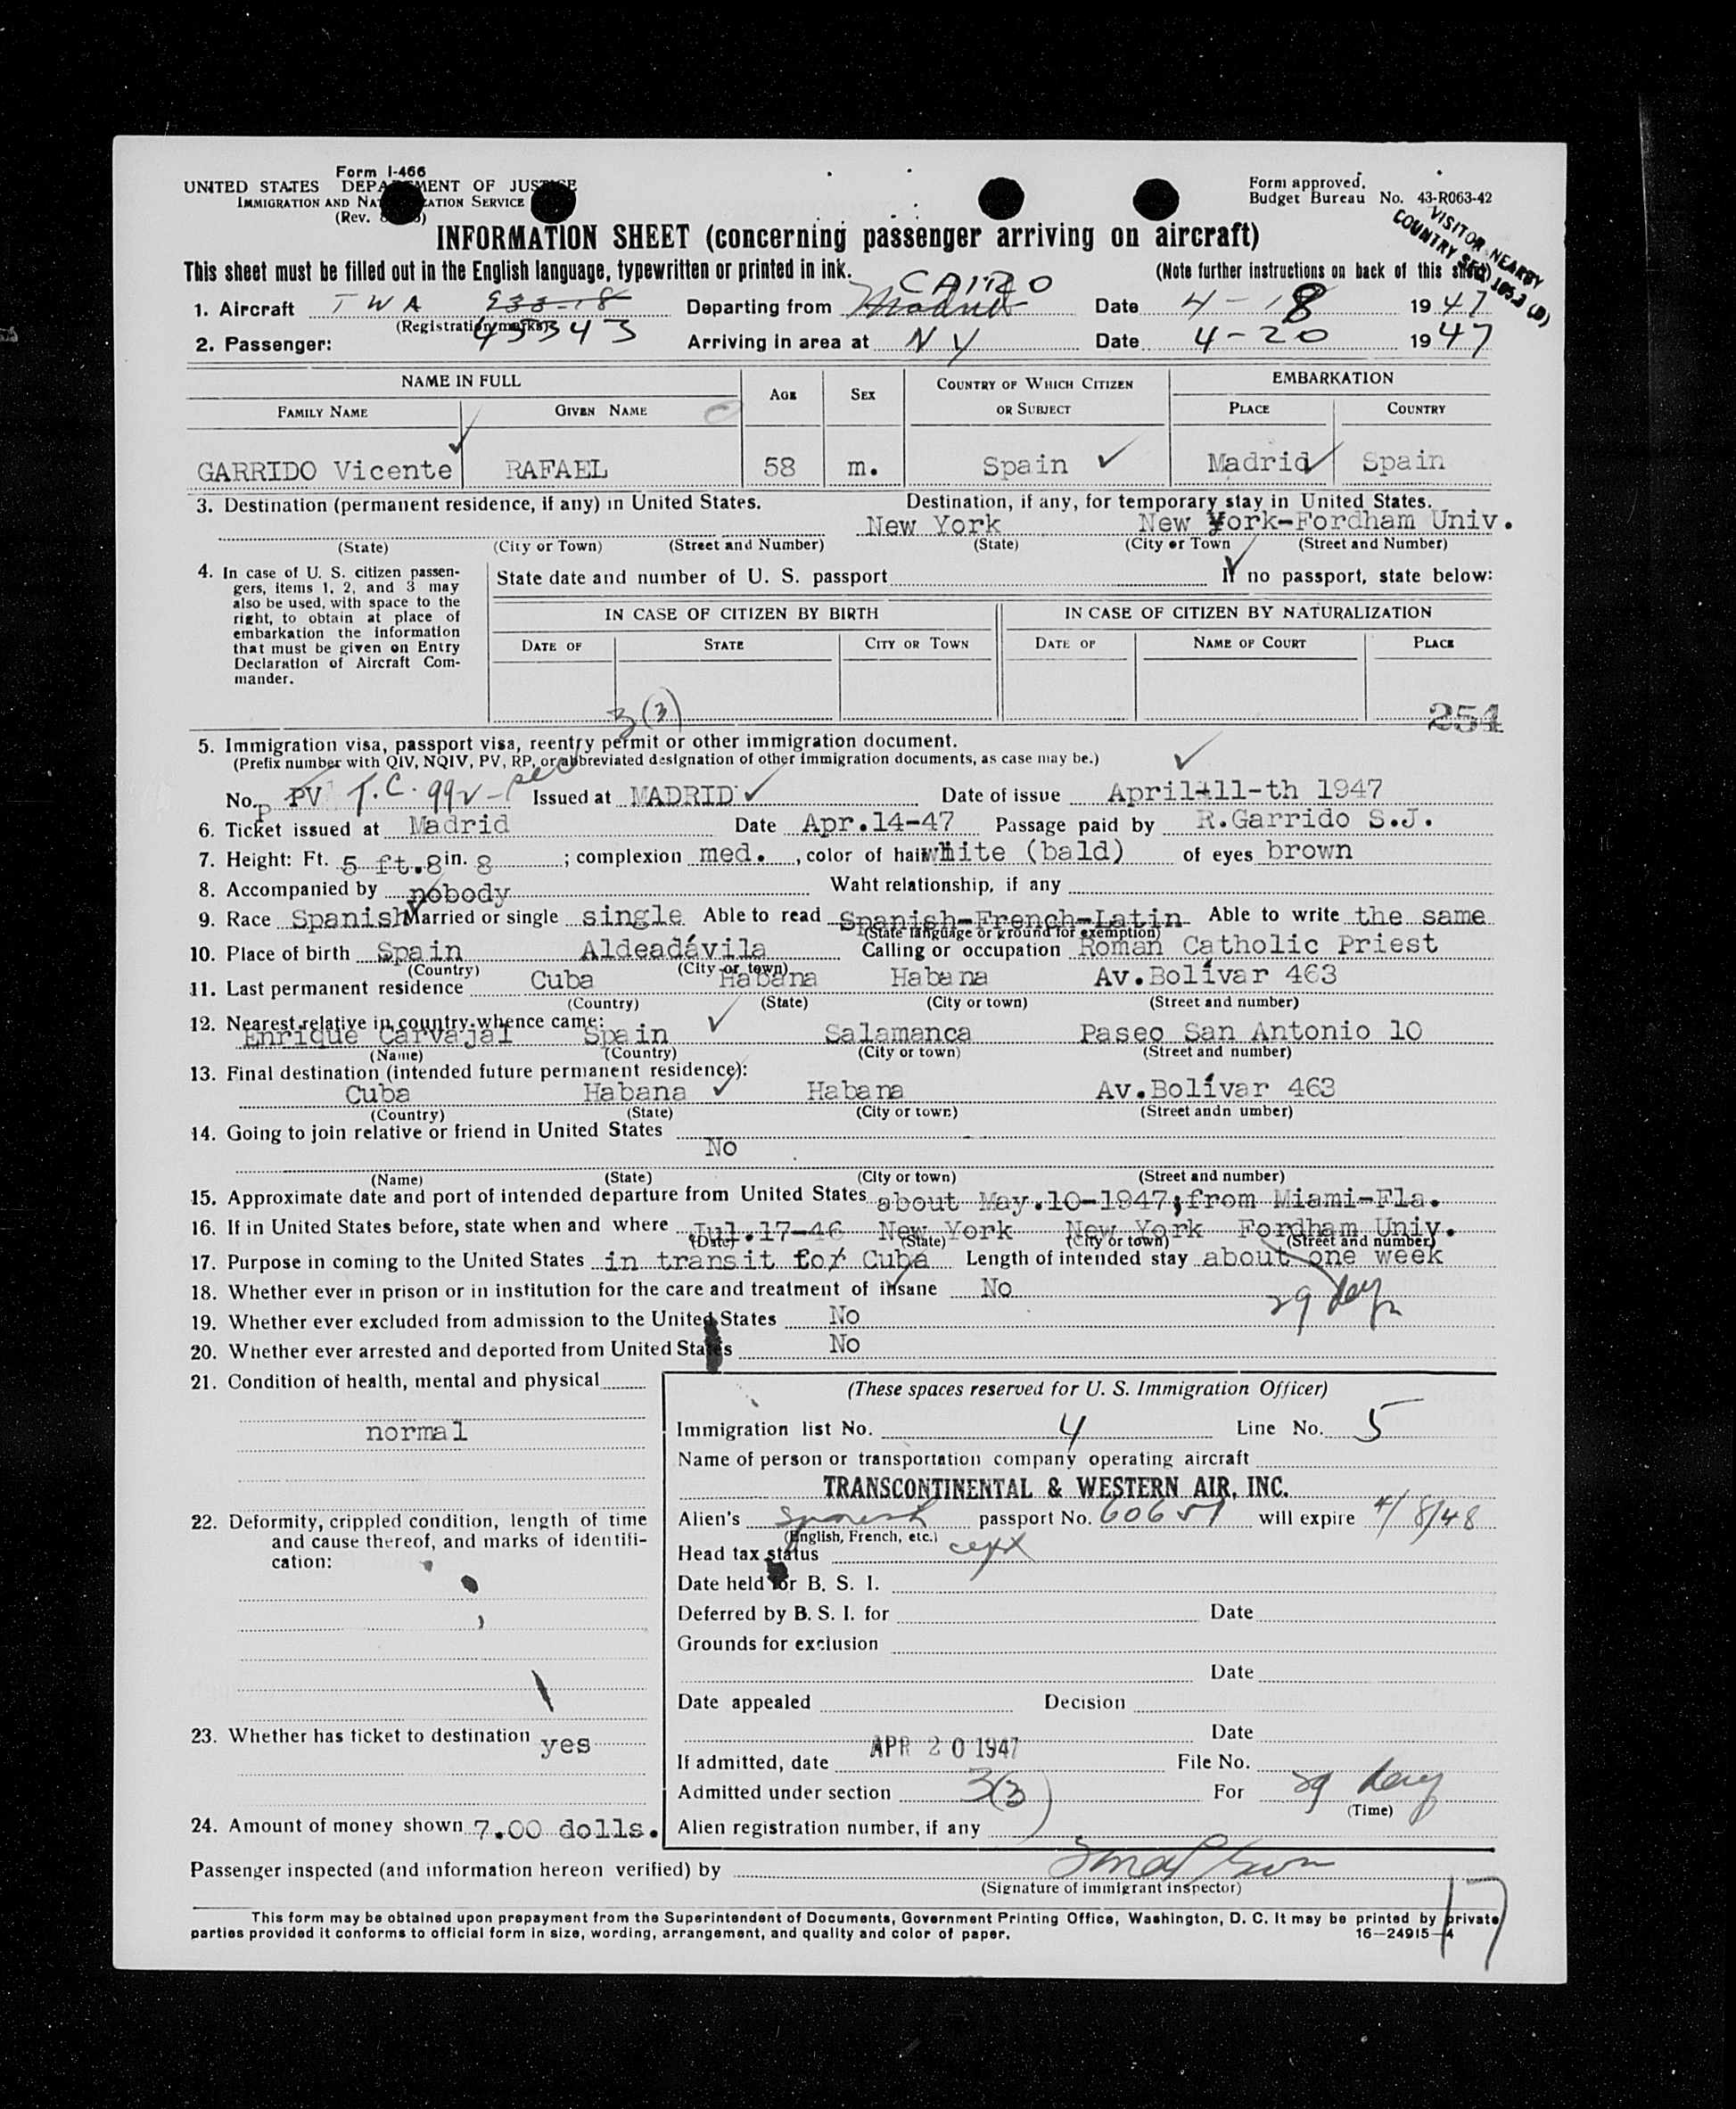 Form I-466
UNITED STATES DEPARTMENT OF JUSTICE
IMMIGRATION AND NATURALIZATION SERVICE
(Rev.
Form approved.
Budget Bureau No. 43-R063-42
VISITOR NEARBY
COUNTRY SEC. 165.3 (B)
INFORMATION SHEET (concerning passenger arriving on aircraft)
This sheet must be filled out in the English language, typewritten or printed in ink.
(Note further instructions on back of this sheet)
CAIRO
1. Aircraft TWA Departing from Madrid Date 4-18 1947
(Registration marks) 45343
2. Passenger: Arriving in area at NY Date 4-20 1947
NAME IN FULL AGE SEX COUNTRY OF WHICH CITIZEN OR SUBJECT EMBARKATION
FAMILY NAME GIVEN NAME PLACE COUNTRY
GARRIDO Vicente RAFAEL 58 m. Spain Madrid Spain
3. Destination (permanent residence, if any) in United States. Destination, if any, for temporary stay in United States.
New York New York-Fordham Univ.
(State) (City or Town) (Street and Number) (State) (City or Town (Street and Number)
4. In case of U. S. citizen passen-
gers, items 1, 2, and 3 may
also be used, with space to the
right, to obtain at place of
embarkation the information
that must be given on Entry
Declaration of Aircraft Com-
mander.
State date and number of U. S. passport If no passport, state below:
IN CASE OF CITIZEN BY BIRTH IN CASE OF CITIZEN BY NATURALIZATION
DATE OF STATE CITY OR TOWN DATE OF NAME OF COURT PLACE
3(3)
254
5. Immigration visa, passport visa, reentry permit or other immigration document.
(Prefix number with QIV, NQIV, PV, RP, or abbreviated designation of other immigration documents, as case may be.)
No. PV T.C. 992 Issued at MADRID Date of issue April-11-th 1947
6. Ticket issued at Madrid Date Apr.14-47 Passage paid by R.Garrido S.J.
7. Height: Ft. 5 ft.8 in. 8 ; complexion med. , color of hair white (bald) of eyes brown
8. Accompanied by nobody Waht relationship, if any
9. Race Spanish Married or single single Able to read Spanish-French-Latin Able to write the same
(State language or ground for exemption)
10. Place of birth Spain Aldeadávila Calling or occupation Roman Catholic Priest
(Country) (City or town)
11. Last permanent residence Cuba Habana Habana Av.Bolívar 463
(Country) (State) (City or town) (Street and number)
12. Nearest relative in country whence came:
Enrique Carvajal Spain Salamanca Paseo San Antonio 10
(Name) (Country) (City or town) (Street and number)
13. Final destination (intended future permanent residence):
Cuba Habana Habana Av.Bolívar 463
(Country) (State) (City or town) (Street andn umber)
14. Going to join relative or friend in United States
No
(Name) (State) (City or town) (Street and number)
15. Approximate date and port of intended departure from United States about May.10-1947;from Miami-Fla.
16. If in United States before, state when and where Jul.17-46 New York New York Fordham Univ.
(Date) (State) (City or town) (Street and number)
17. Purpose in coming to the United States in transit for Cuba Length of intended stay about one week
29 days
18. Whether ever in prison or in institution for the care and treatment of insane No
19. Whether ever excluded from admission to the United States No
20. Whether ever arrested and deported from United States No
21. Condition of health, mental and physical
normal
22. Deformity, crippled condition, length of time
and cause thereof, and marks of identifi-
cation:
23. Whether has ticket to destination yes
24. Amount of money shown 7.00 dolls.
(These spaces reserved for U. S. Immigration Officer)
Immigration list No. 4 Line No. 5
Name of person or transportation company operating aircraft
TRANSCONTINENTAL & WESTERN AIR, INC.
Alien's Spanish passport No. 60651 will expire 4/8/48
(English, French, etc.)
Head tax status
Date held for B. S. I.
Deferred by B. S. I. for Date
Grounds for exclusion
Date
Date appealed Decision
Date
If admitted, date APR 20 1947 File No.
Admitted under section 3(3) For 29 days
(Time)
Alien registration number, if any
Passenger inspected (and information hereon verified) by
(Signature of immigrant inspector)
17
This form may be obtained upon prepayment from the Superintendent of Documents, Government Printing Office, Washington, D. C. It may be printed by private
parties provided it conforms to official form in size, wording, arrangement, and quality and color of paper. 16—24915-4